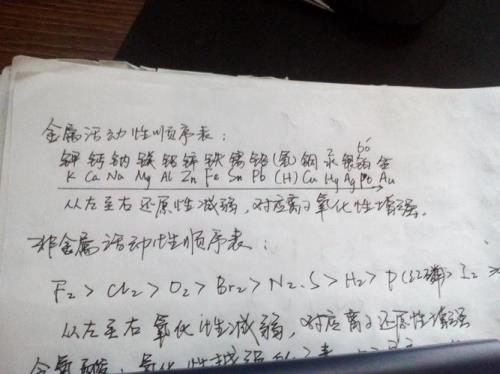 金属活动性顺序表：
钾 钙 钠 镁 铝 锌 铁 锡 铅 (氢) 铜 汞 银 铂 金
K Ca Na Mg Al Zn Fe Sn Pb (H) Cu Hg Ag Pt Au
从左至右还原性减弱，对应离子氧化性增强。
非金属活动性顺序表：
F₂ > Cl₂ > O₂ > Br₂ > N₂.S > H₂ > P(红磷) > I₂
从左至右氧化性减弱，对应离子还原性增强